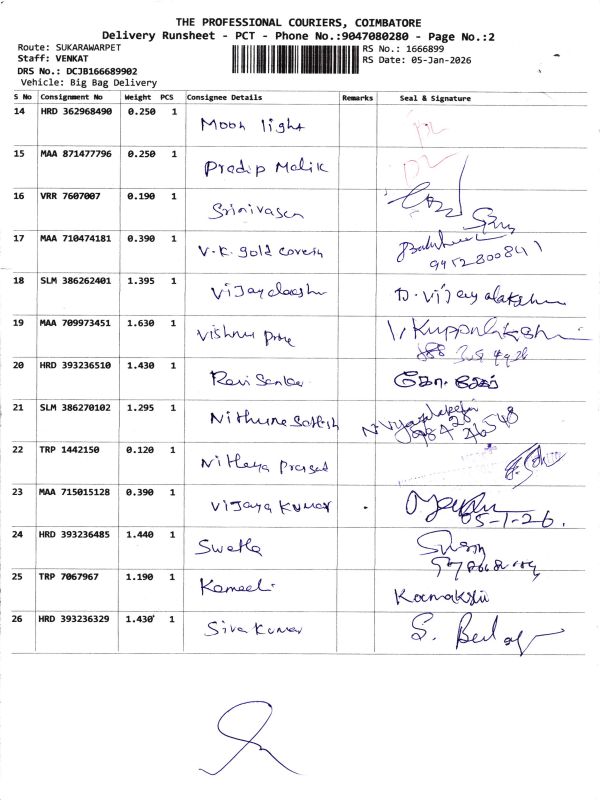 THE PROFESSIONAL COURIERS, COIMBATORE
Delivery Runsheet - PCT - Phone No.:9047080280 - Page No.:2
Route: SUKARAWARPET
RS No.: 1666899
Staff: VENKAT
RS Date: 05-Jan-2026
DRS No.: DCJB166689902
Vehicle: Big Bag Delivery
S No Consignment No Weight PCS Consignee Details Remarks Seal & Signature
14 HRD 362968490 0.250 1 Moon light
15 MAA 871477796 0.250 1 Pradip Malik
16 VRR 7607007 0.190 1 Srinivasan
17 MAA 710474181 0.390 1 V.K. gold coverin
18 SLM 386262401 1.395 1 Vijayalakshmi D. Vijayalakshmi
19 MAA 709973451 1.630 1 Vishnu
20 HRD 393236510 1.430 1 Ravi Sankar
21 SLM 386270102 1.295 1 Nithune Sathish
22 TRP 1442150 0.120 1 Nithya Prasad
23 MAA 715015128 0.390 1 Vijaya Kumar
05-1-26.
24 HRD 393236485 1.440 1 Swetha
25 TRP 7067967 1.190 1 Kamachi Kamakshi
26 HRD 393236329 1.430 1 Siva Kumar